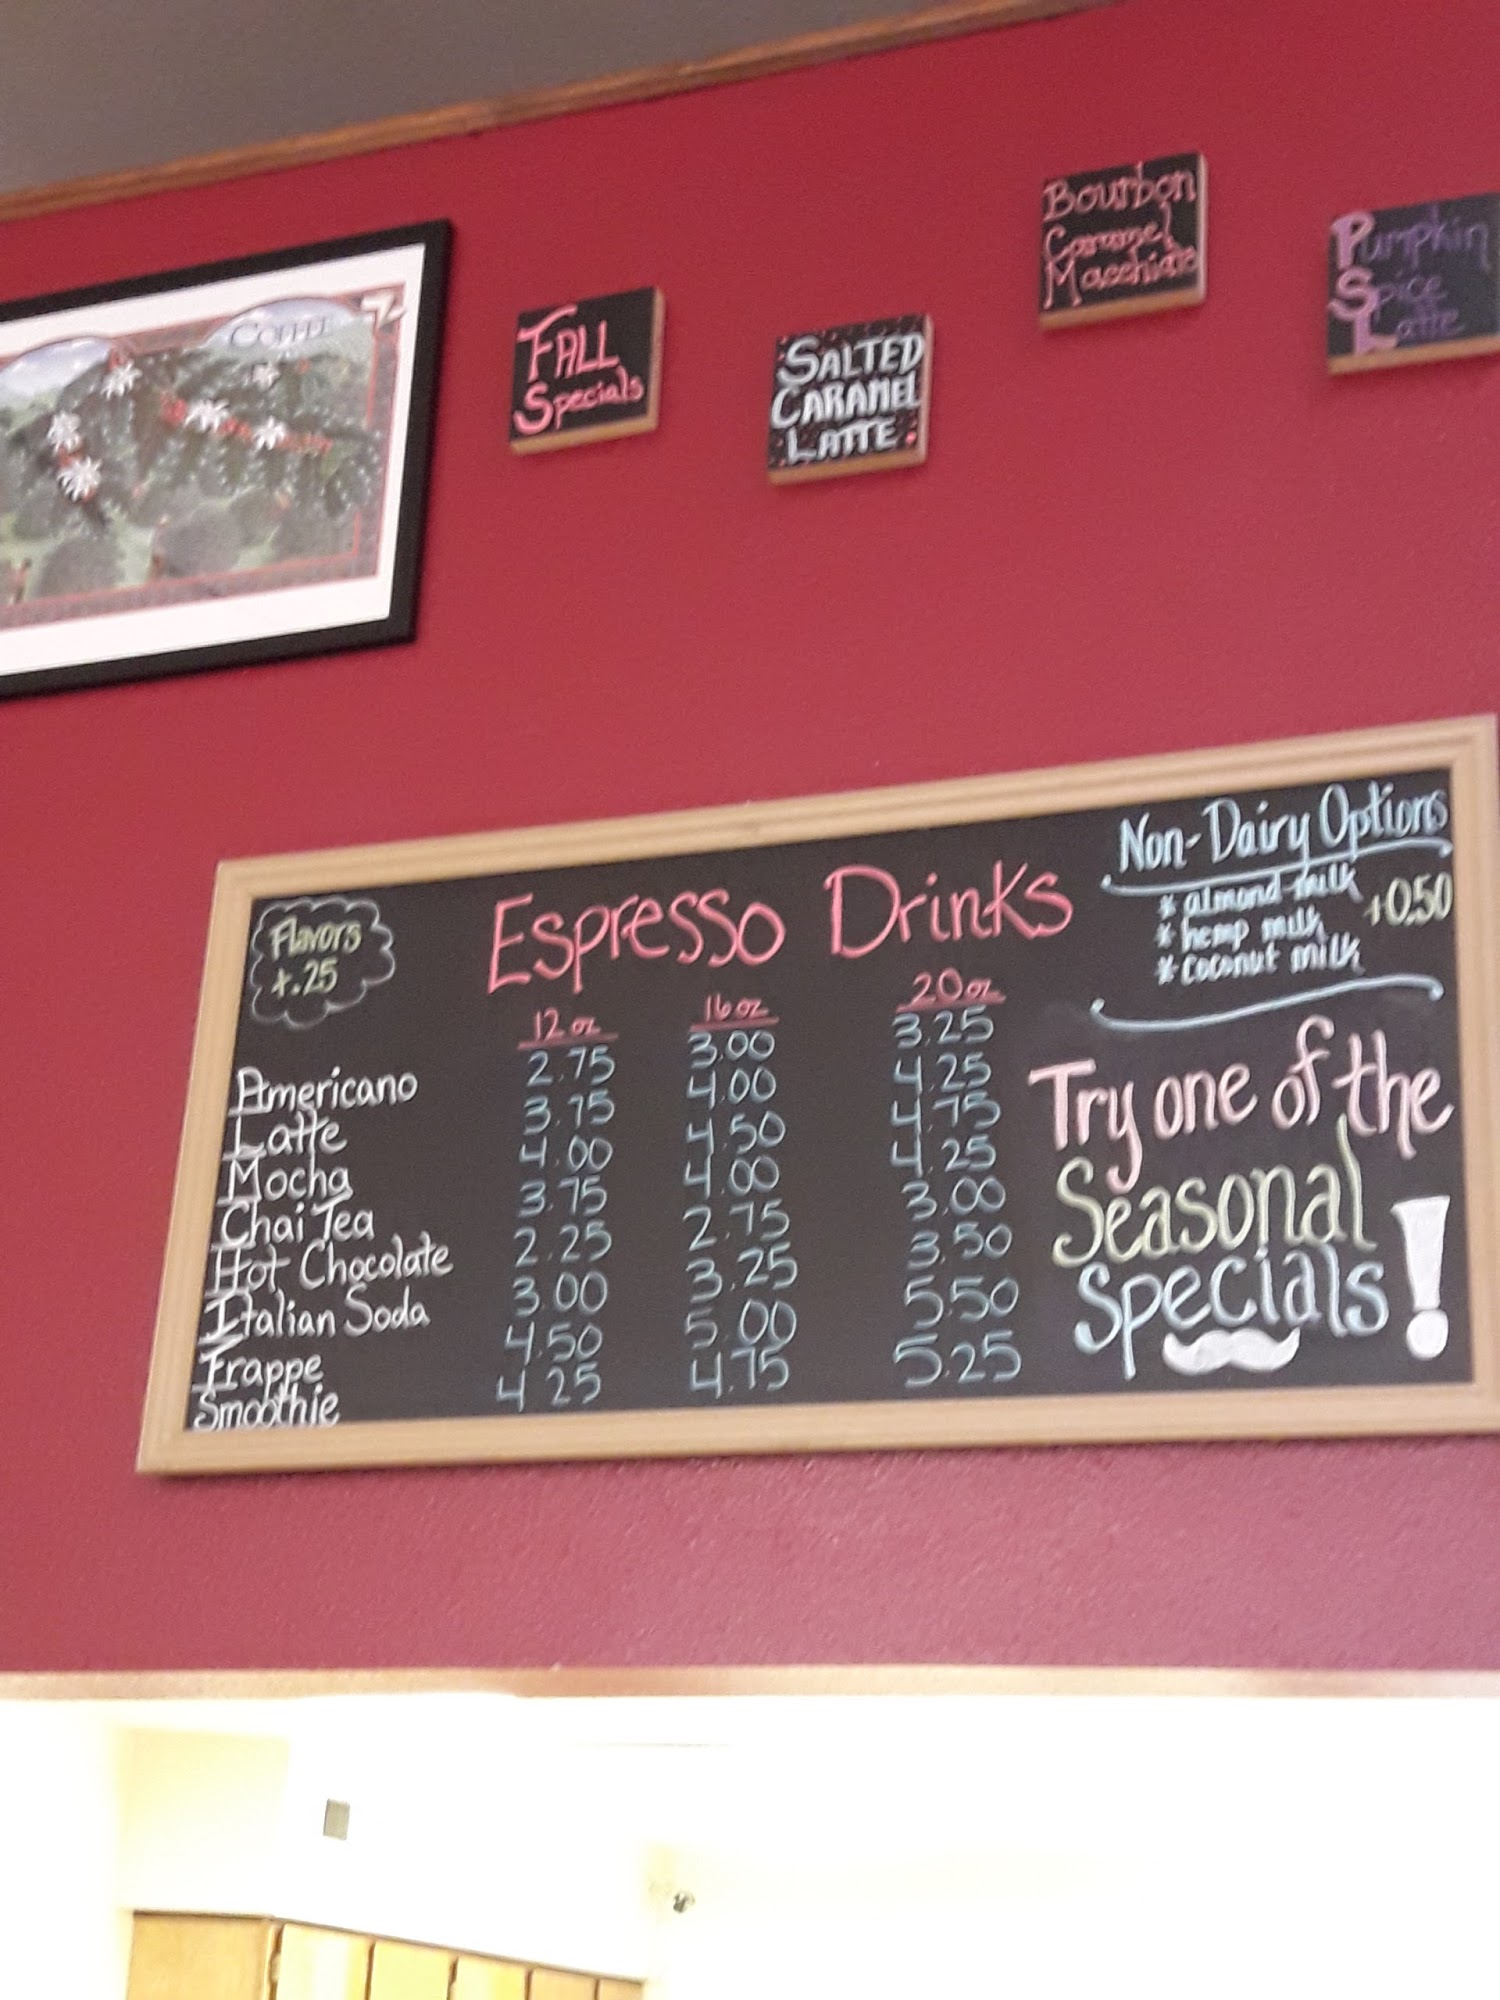 COFFEE
FALL
Specials
SALTED
CARAMEL
LATTE
Bourbon
Caramel
Macchiato
Pumpkin
Spice
Latte
Flavors
+.25
Espresso Drinks
Non-Dairy Options
* almond milk
* hemp milk
* coconut milk
+0.50
12 oz 16 oz 20 oz
Americano 2.75 3.00 3.25
Latte 3.75 4.00 4.25
Mocha 4.00 4.50 4.75
Chai Tea 3.75 4.00 4.25
Hot Chocolate 2.25 2.75 3.00
Italian Soda 3.00 3.25 3.50
Frappe 4.50 5.00 5.50
Smoothie 4.25 4.75 5.25
Try one of the
Seasonal
Specials!